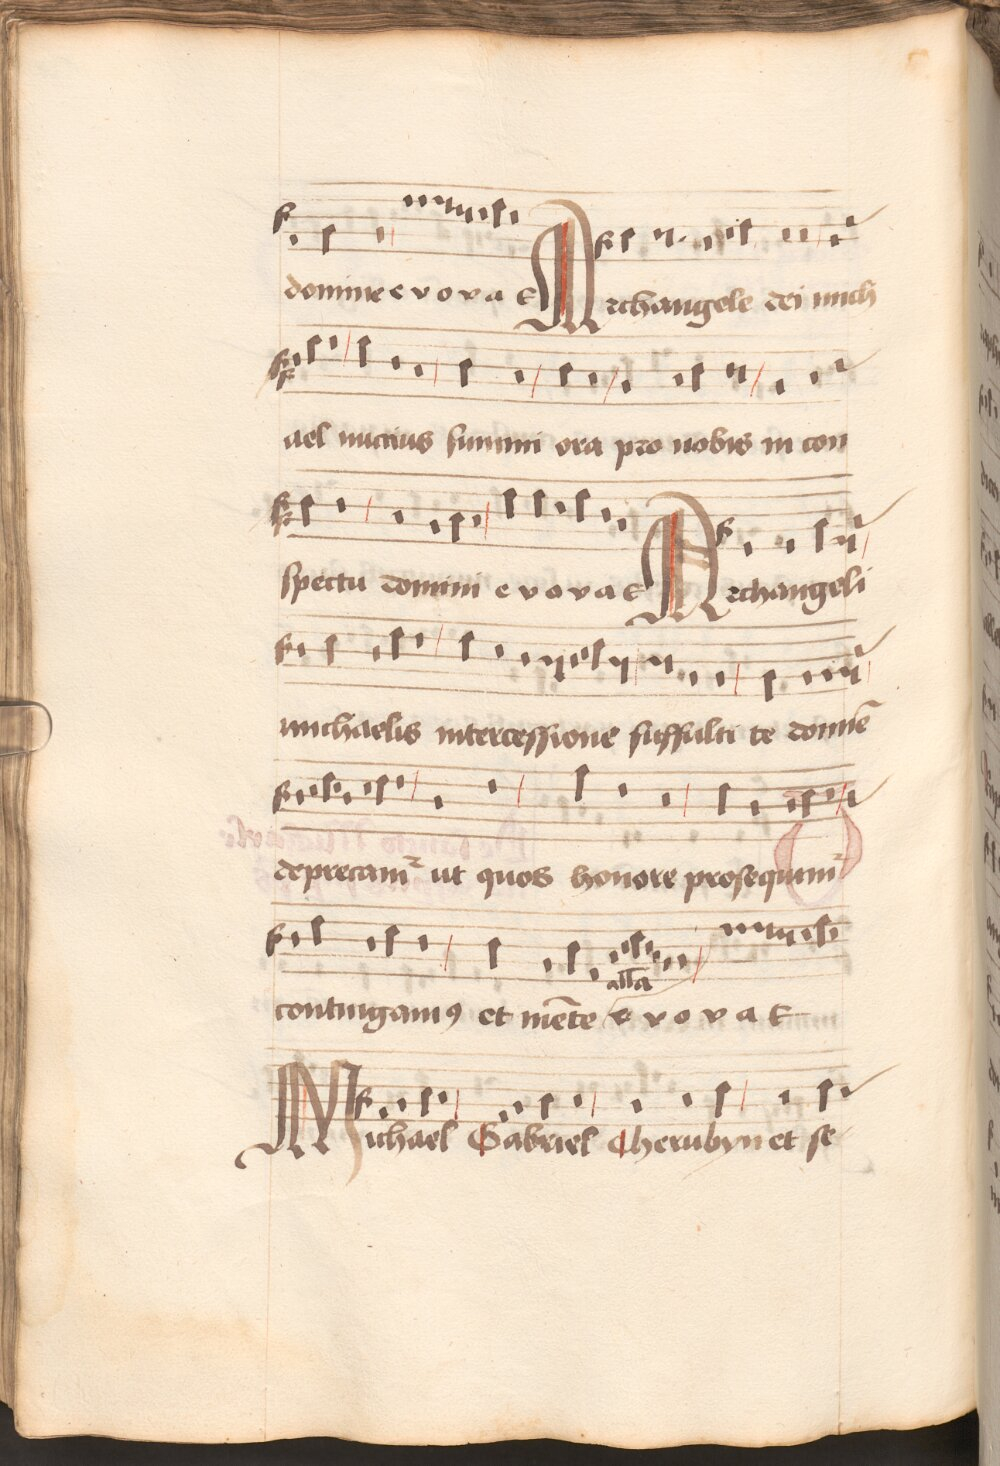 domine e v o v a e Archangele dei mich
ael nuctius summi ora pro nobis in con
spectu domini e v o v a e Archangeli
michaelis intercessione suffulti te domine
deprecamur ut quos honore prosequimur
contingamus et mente alla e v o v a e
Michael Gabriel Cherubyn et se